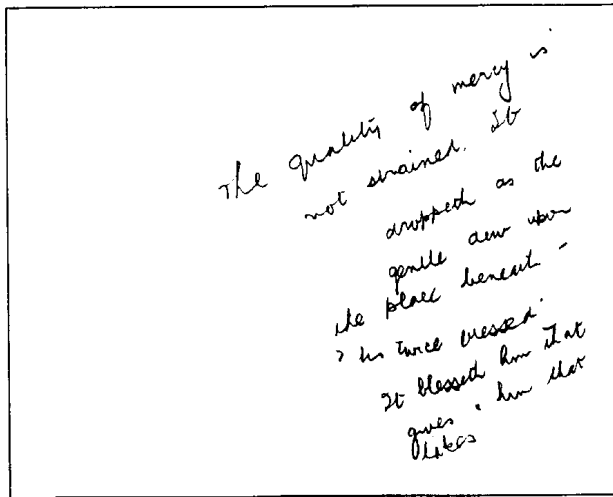 The quality of mercy is
not strained. It
droppeth as the
gentle dew upon
the place beneath -
? his twice blessed.
It blesseth him that
gives & him that
takes